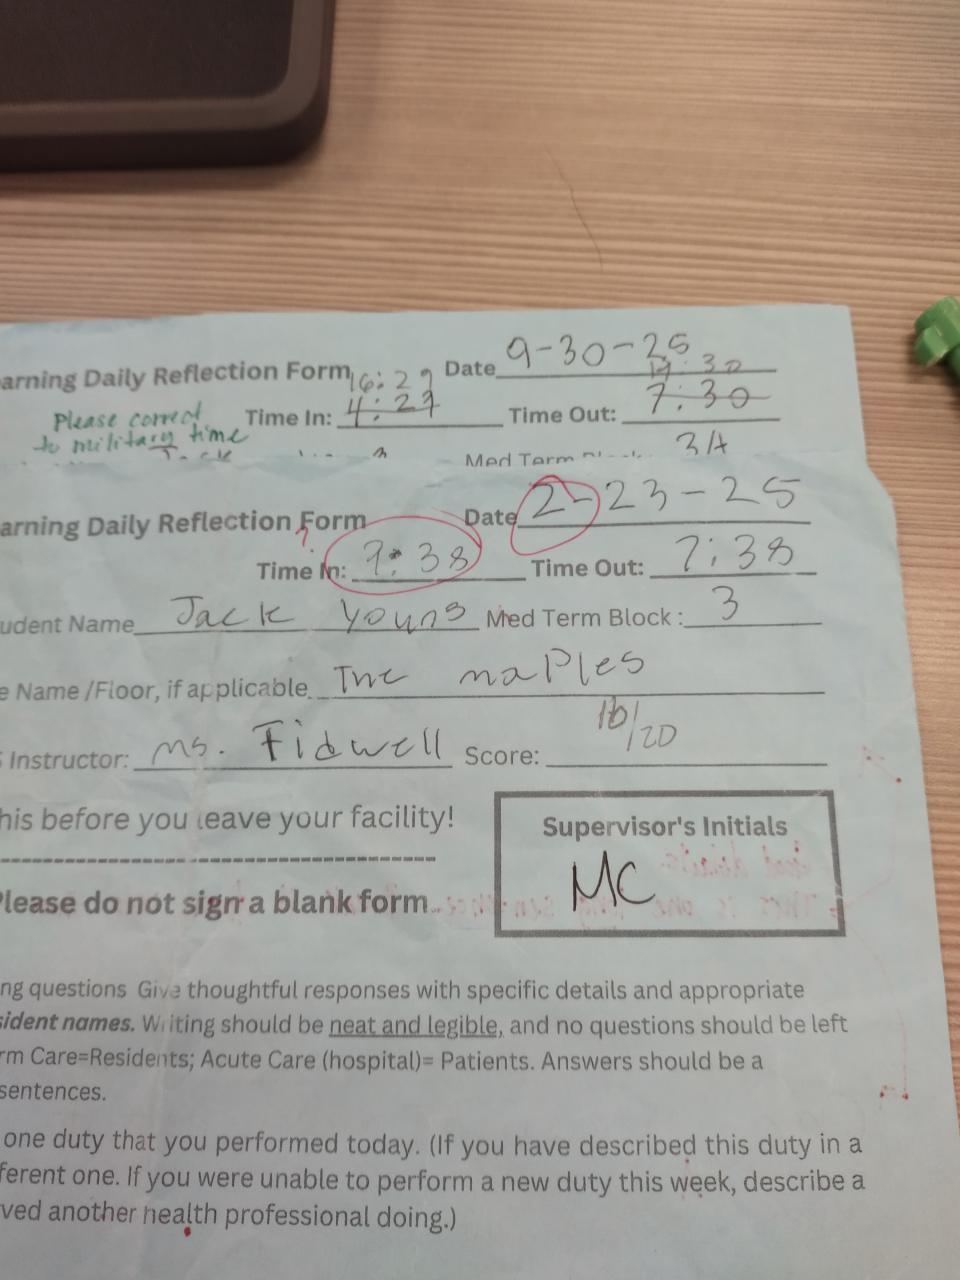 arning Daily Reflection Form Date 9-30-25
16:27 19:30
Please correct Time In: 4:27 Time Out: 7:30
to military time
Med Term 3A
arning Daily Reflection Form Date 2-23-25
?
Time In: 7:38 Time Out: 7:38
udent Name Jack Young Med Term Block : 3
e Name /Floor, if applicable. The maples
Instructor: ms. Fidwell Score: 16/20
his before you leave your facility!
Supervisor's Initials
MC
Please do not sign a blank form
ng questions Give thoughtful responses with specific details and appropriate
sident names. Writing should be neat and legible, and no questions should be left
rm Care=Residents; Acute Care (hospital)= Patients. Answers should be a
sentences.
one duty that you performed today. (If you have described this duty in a
ferent one. If you were unable to perform a new duty this week, describe a
ved another health professional doing.)